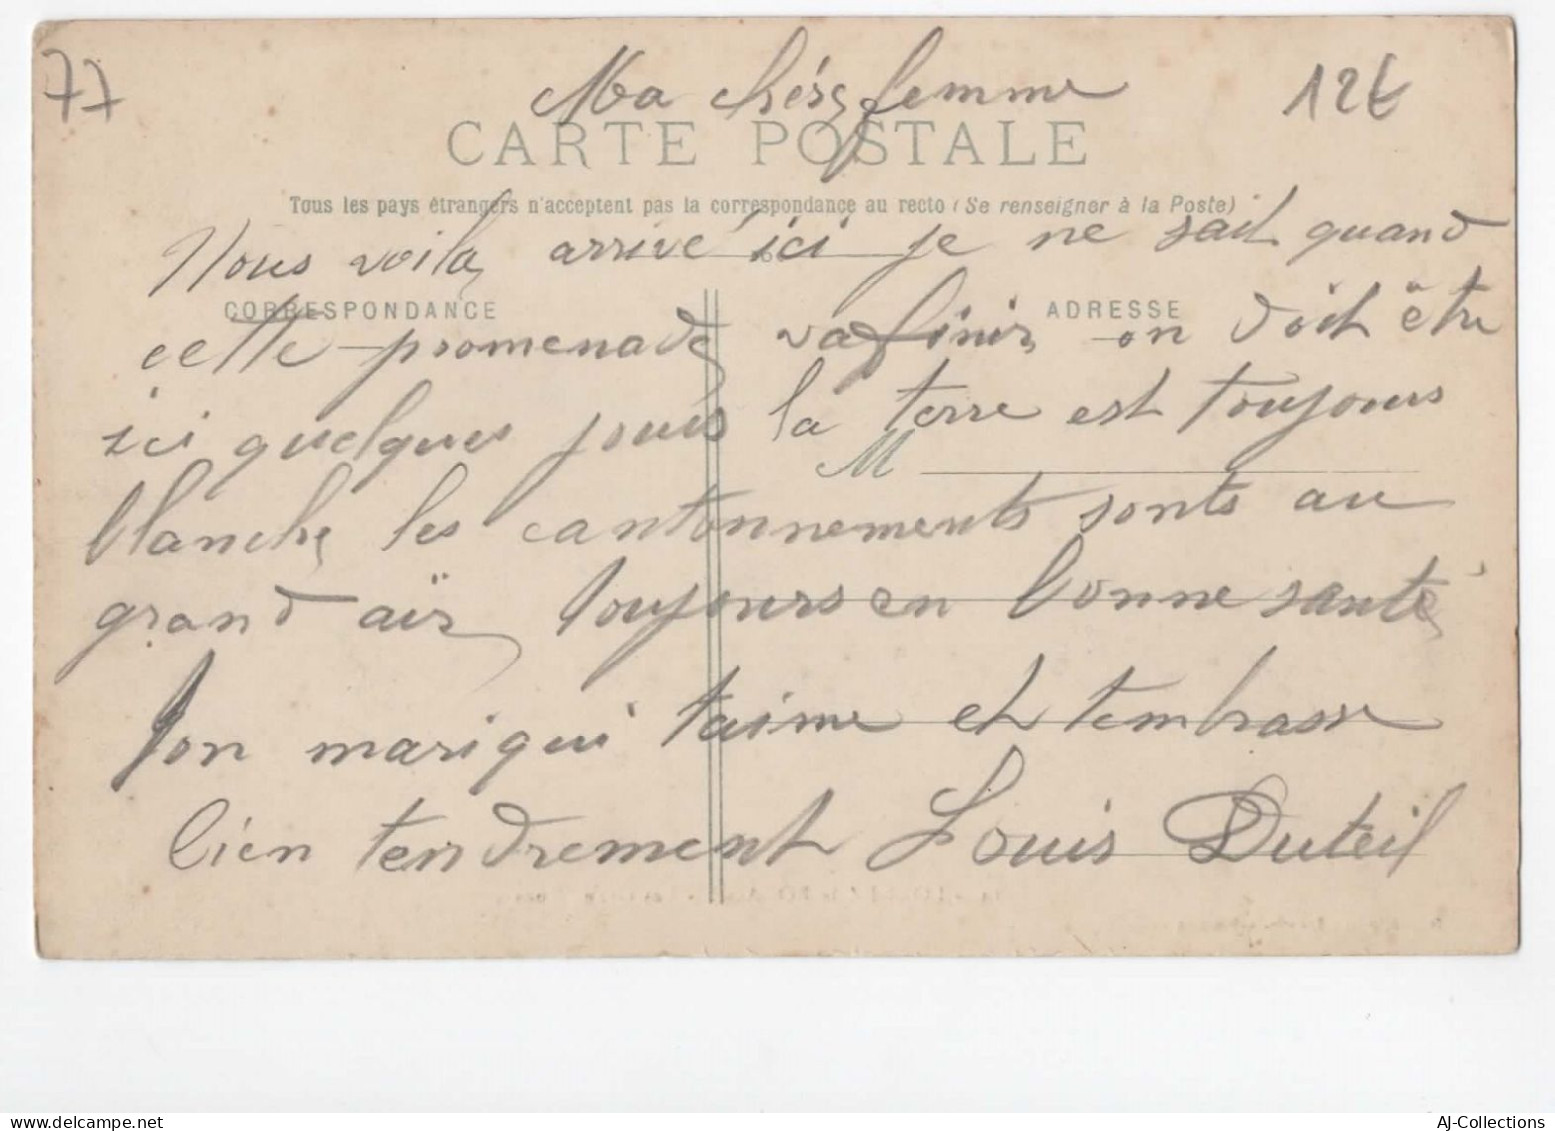 77
12€
Ma chére femme
CARTE POSTALE
Tous les pays étrangers n'acceptent pas la correspondance au recto (Se renseigner à la Poste)
Nous voila arrivé ici je ne sait quand
CORRESPONDANCE
ADRESSE
cette promenade va finir on doit être
ici quelques jours la terre est toujours
M
blanche les cantonnements sonts au
grand air toujours en bonne santé
Ton mari qui t'aime et t'embrasse
bien tendrement Louis Duteil
AJ-Collections